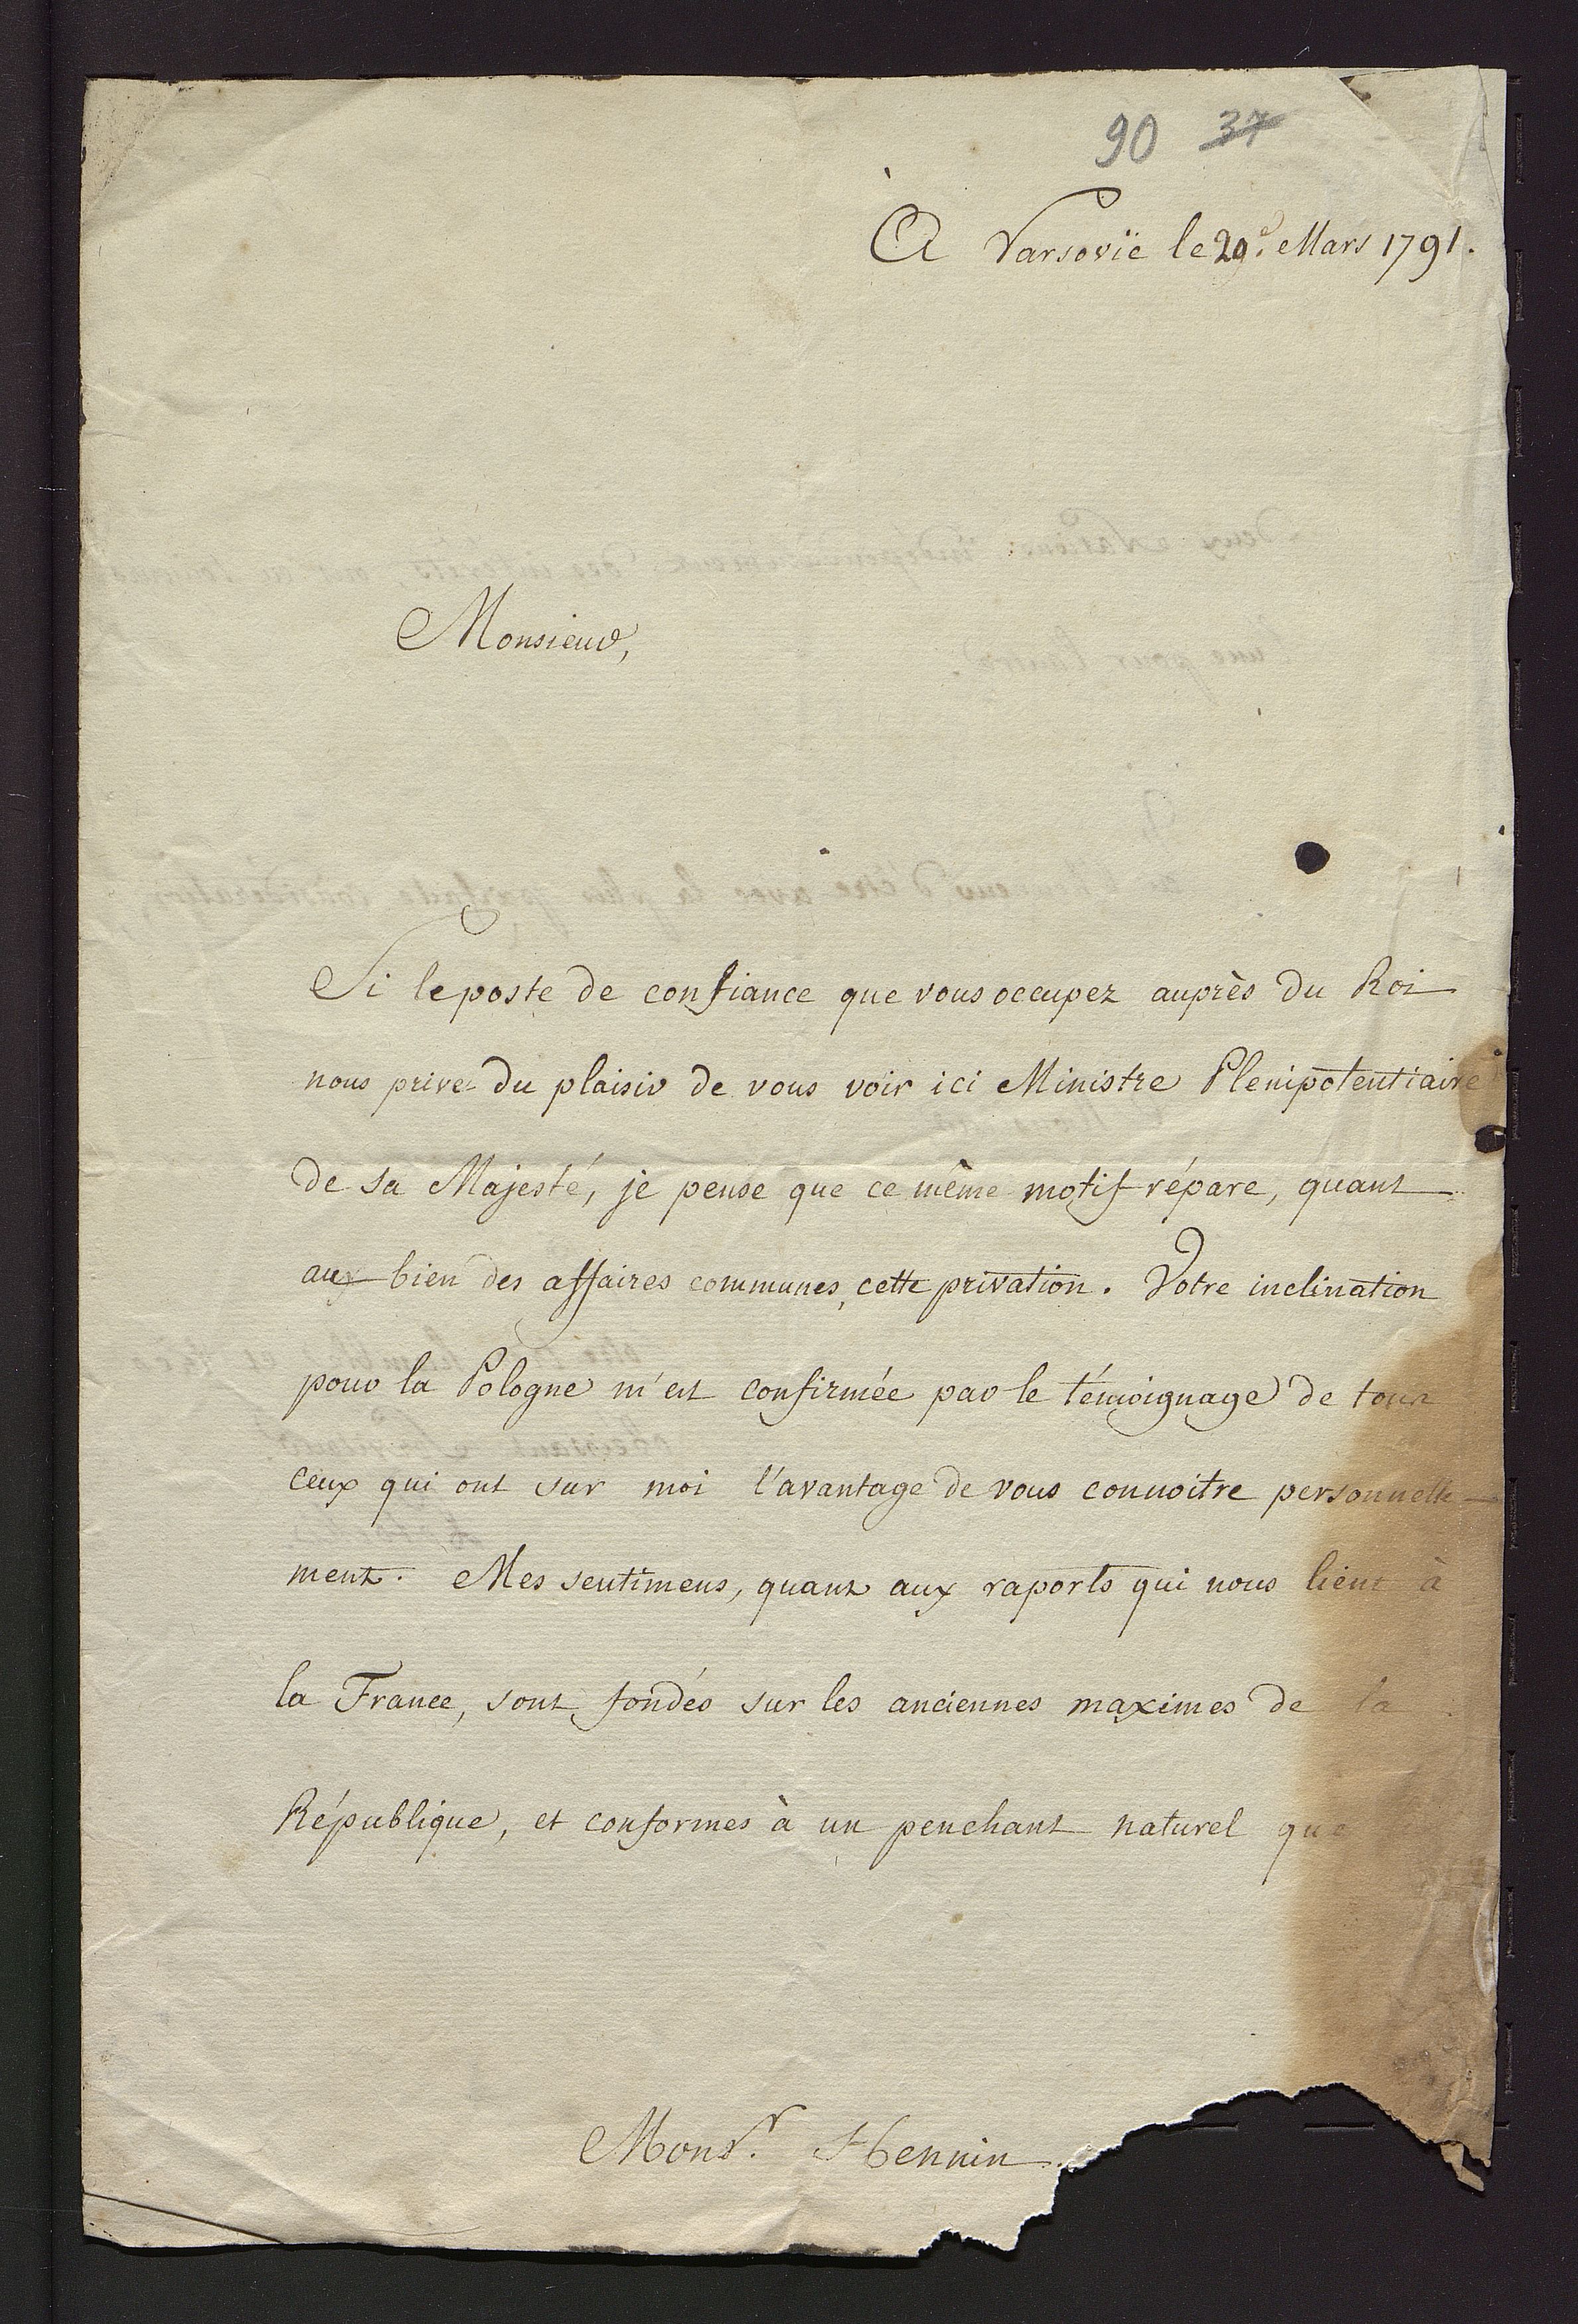 90 37
A Varsovie le 29.e Mars 1791.
Monsieur,
Si le poste de confiance que vous occupez auprès du Roi
nous prive du plaisir de vous voir ici Ministre Plenipotentiaire
de sa Majesté, je pense que ce même motif répare, quant
aux bien des affaires communes, cette privation. Votre inclination
pour la Pologne m'est confirmée par le témoignage de tous
ceux qui ont sur moi l'avantage de vous connoitre personnelle-
ment. Mes sentimens, quant aux raports qui nous lient à
la France, sont fondés sur les anciennes maximes de la
République, et conformes à un penchant naturel que
Monsr. Hennin.